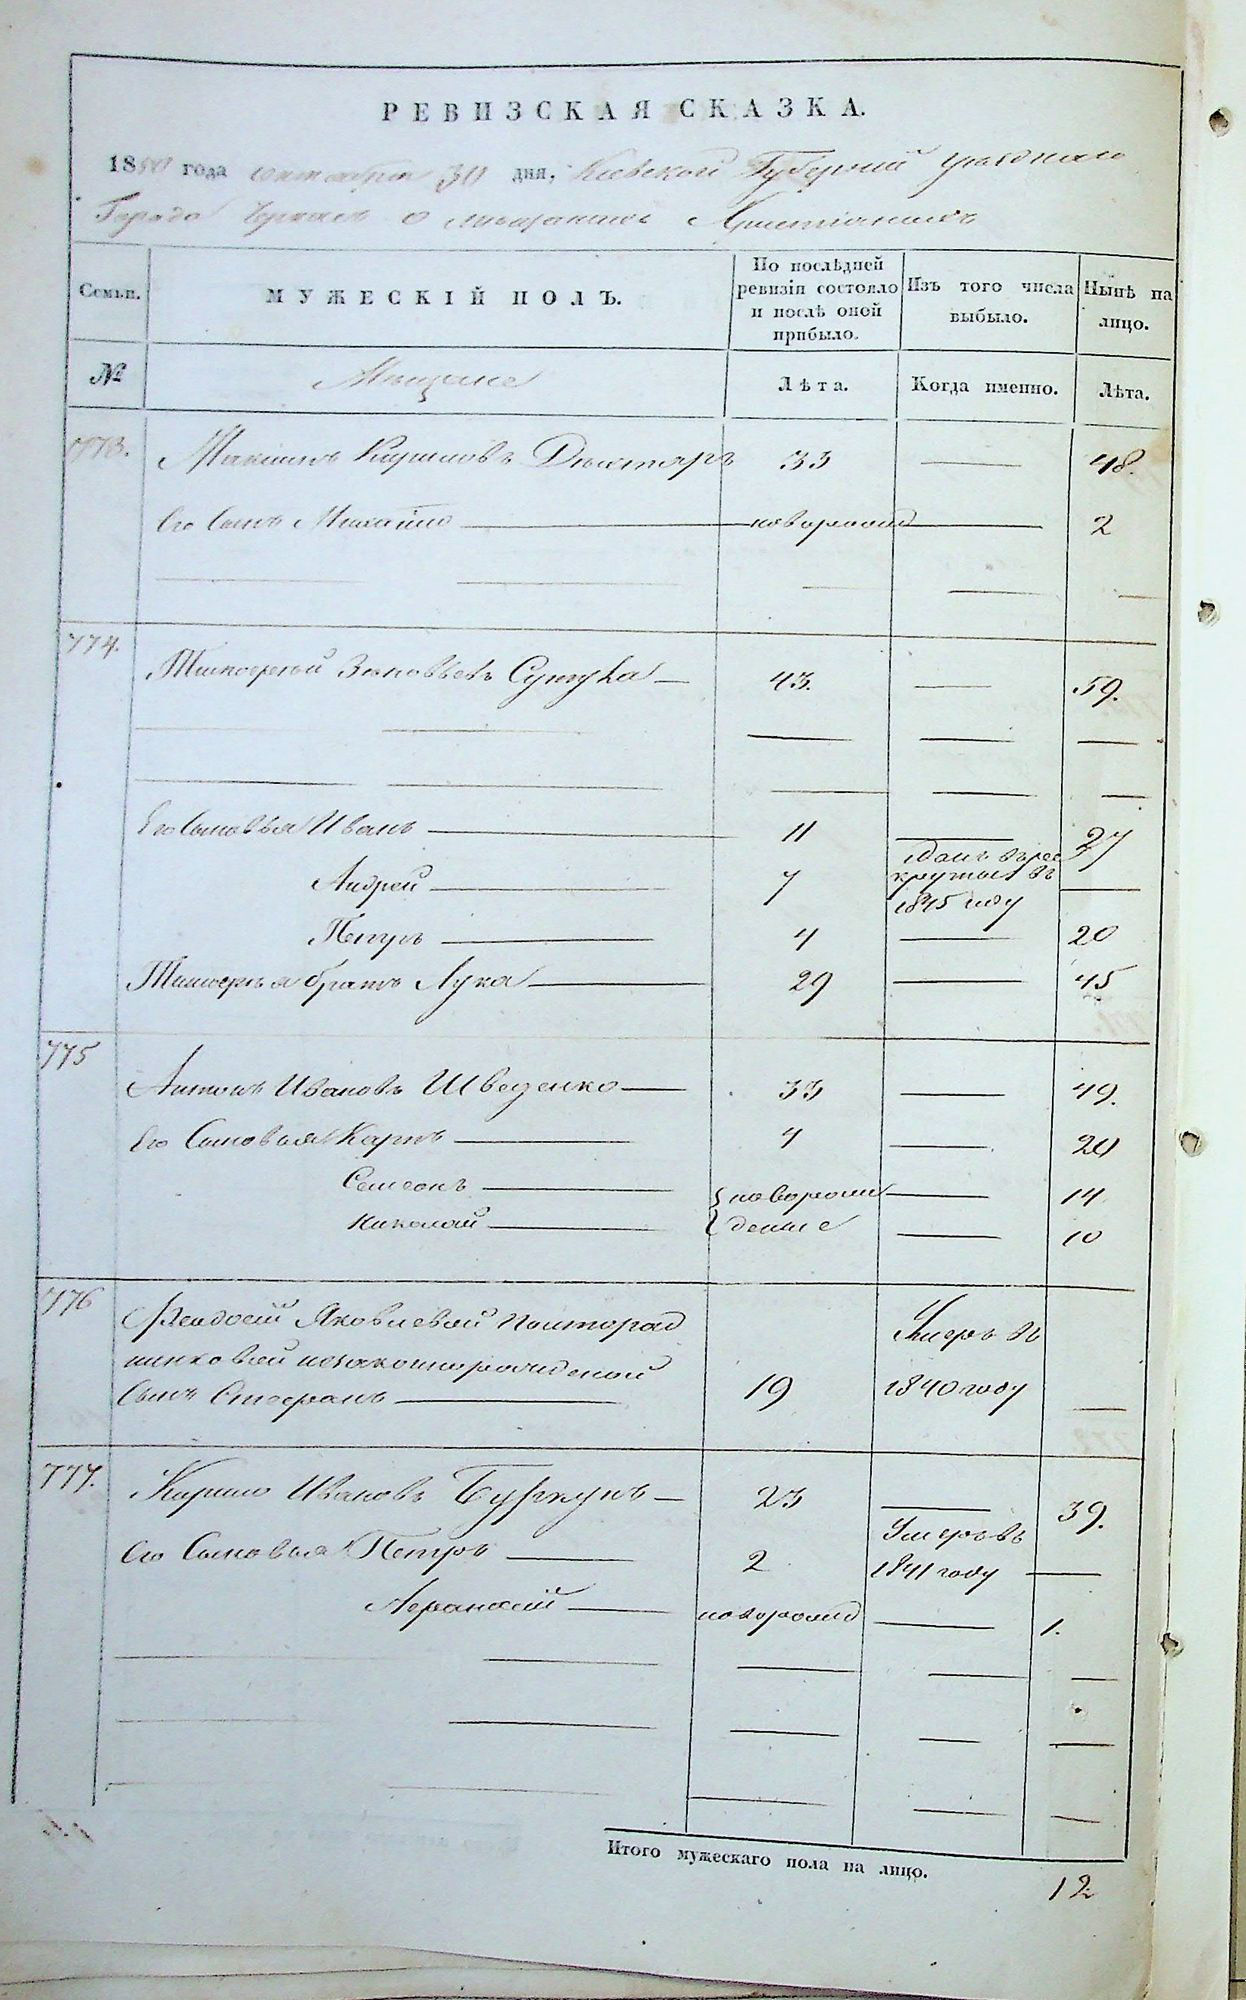 РЕВИЗСКАЯ СКАЗКА.
1850 года октября 30 дня, Киевской Губернии уезднаго
Города Черкас о мещанах Христианах
Семьи.
МУЖЕСКІЙ ПОЛЪ.
По послѣдней ревизіи состояло и послѣ оной прибыло.
Изъ того числа выбыло.
Нынѣ на лицо.
№
Мещане
Лѣта.
Когда именно.
Лѣта.
773. Максимъ Кириловъ 33 48.
Его Сынъ Михайло новорожд 2
774. Тимофей Зиновьевъ 43. 59.
Его Сыновья Иванъ 11 27
Андрей 7 отданъ въ рекруты въ 1845 году
Петръ 4 20
Тимофея братъ Лука 29 45
775 Антонъ Ивановъ Шведенко 33 49.
Его Сыновья Карпъ 4 20
Семенъ новорож 14
Николай денные 10
776 Феодосіи Яковлевой
незаконнорожденой
Сынъ Стефанъ 19 Умеръ въ 1840 году
777. Кирило Ивановъ 23 39.
Его Сыновья Петръ 2 Умеръ въ 1841 году
Афанасій новорожд 1.
Итого мужескаго пола на лицо. 12